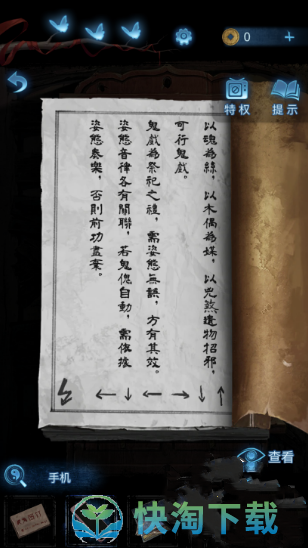 0 +
特权 提示
以魂為絲，以木偶為媒，以兇煞遺物招邪，
可行鬼戲。
鬼戲為祭祀之禮，需姿態無誤，方有其效。
姿態音律各有關聯，若鬼傀自動，需依據
姿態奏樂，否則前功盡棄。
查看
手机
快淘下载